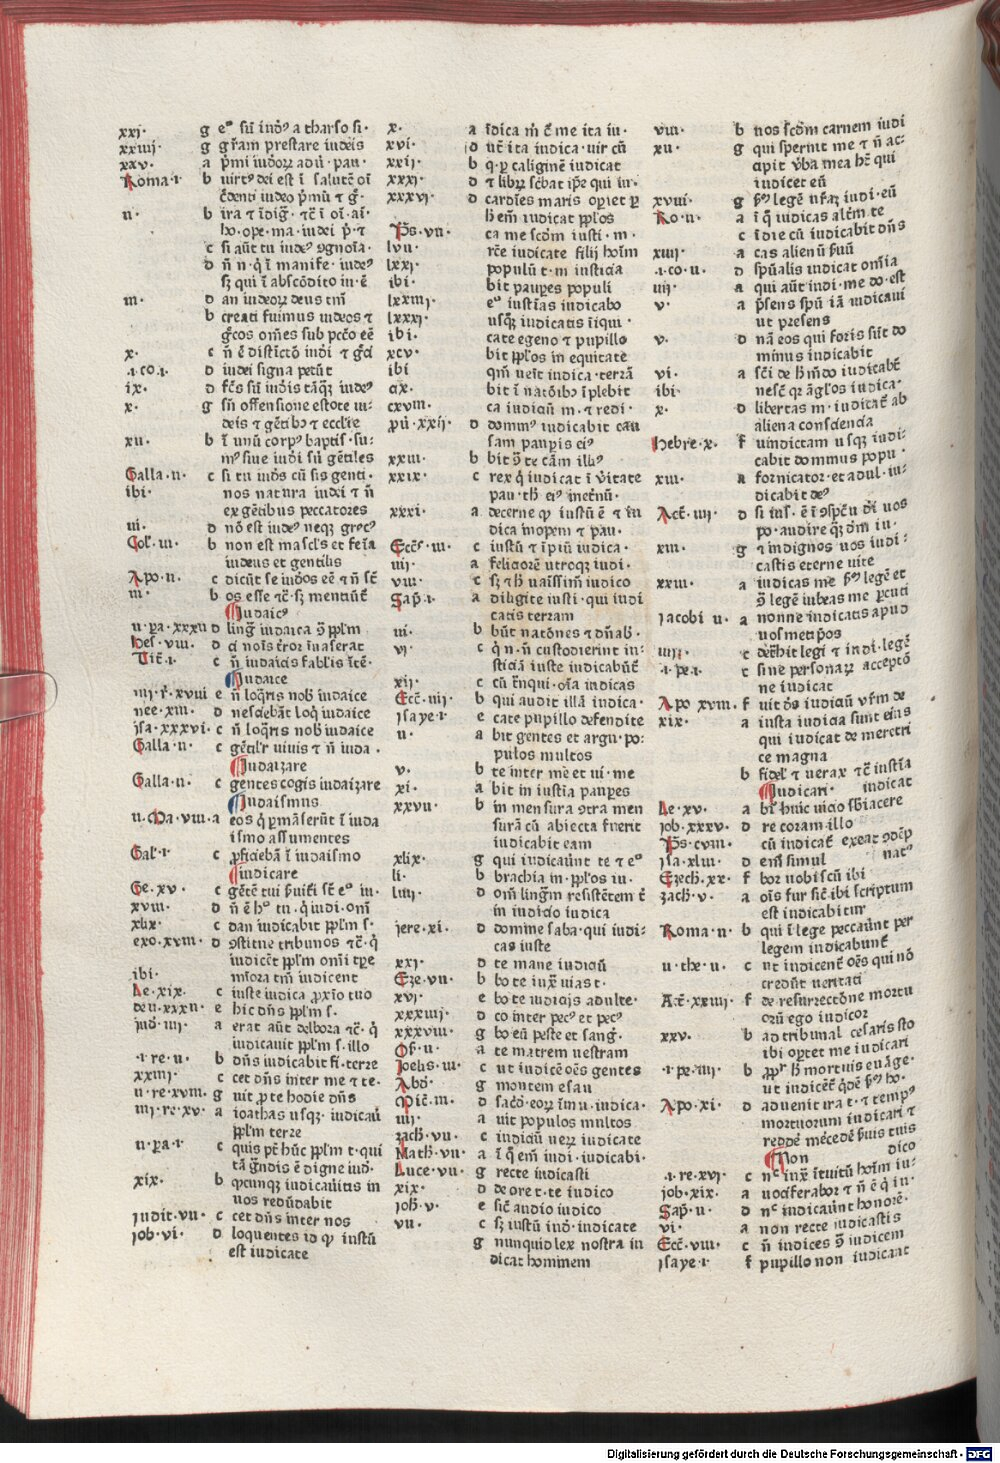 xxi· g eº sū iudꝰ a tharso si·
xxiiij· g gr̄am prestare iudeis
xxv· a pͥmi iudeoꝝ adū· pau·
Roma·i· b uirtꝰ dei est ī salutē oī
credenti iudeo pͥmū ⁊ ḡ·
ii· b ira ⁊ īdiḡ· ⁊c̄ ī oī· aī·
ho· ope· ma· iudei pͥ· ⁊
c si aūt tu iudeꝰ ꝯgnoīa·
d n̄ n· q̇ ī manife· iudeꝰ
sꝫ qui ī abscōdito iu· ē
iii· d an iudeoꝝ deus tm̄
b creati fuimus iudeos ⁊
g̊cos om̄es sub pctō eē
x· c n̄ ē distīctō iudi ⁊ g̊ci
·i·co·i· d iudei signa petūt
ix· d fc̄s sū iudīs tāqꝫ iudeꝰ
x· g sn̄ offensione estote iu-
deis ⁊ gētibꝰ ⁊ ecclīe
xii· b ī unū corpꝰ baptiſ· su-
mꝰ siue iudī sū gētiles
Galla·ii· c si tu iudꝰ cū sis genti·
ibi· nos natura iudei ⁊ n̄
ex gētibus peccatores
iii· d nō est iudeꝰ neqꝫ grecꝰ
Col̄·iii· b non est mascl̄s et feīa
iudeus et gentilis
Apo·ii· c dicūt se iudos eē ⁊ n̄ st̄
iii· b os esse ⁊c̄· sꝫ mentiūt̄
Judaicꝰ
ii·pa·xxxii d linḡ iudaica ꝯ̄ ppl̄m
hes·viii· d ci noīs t̄ror inuaserat
Tit̄·i· c n̄ iudaicis fabl̄is ītē·
Judaice
iiij·r̄·xviii e n̄ loq̄ris nob̄ iudaice
nee·xiii· d nesciebāt loq̇ iudaice
isa·xxxvi· c n̄ loq̄ris nob̄ iudaice
Galla·ii· c gētil̄r uiuis ⁊ n̄ iuda·
Judaizare
Galla·ii· c gentes cogis iudaizare
Judaismus
ii·Ma·viii· a eos q̇ pmāserūt ī iuda
ismo assumentes
Gal̄·i· c ꝓficiebā ī iudaismo
Judicare
Ge·xv· c gētē cui s̄uiūt̄ st̄ eº iu·
xviii· d n̄ ē hº tu· q̇ iudi· om̄
xlix· c dan iudicabit ppl̄m s·
exo·xviii· d ꝯstitue tribunos ⁊c̄· q̇
iudicēt ppl̄m omī tpe
ibi· mīora tm̄ iudicent
Le·xix· c iuste iudica ꝓxīo tuo
deu·xxxii· e hic dn̄s ppl̄m s·
iud̄·iiij· a erat aūt delbora ⁊c̄· q̇
iudicauit ppl̄m s· illo
·i·re·ii· b dn̄s iudicabit fi· terre
xxiiij· c cet dn̄s inter me ⁊ te·
ii·re·xviii· g uit p te hodie dn̄s
iiij·re·xv· a ioathas usqꝫ iudicaū
ppl̄m terre
ii·pa·i· c quis pt̄ hūc ppl̄m t· qui
tā g̊ndis ē digne iud̄·
xix· b q̄cunqꝫ iudicaūitis in
uos redūdabit
judit·vii· c cet dn̄s inter nos
job·vi· d loquentes id qͩ iustū
est iudicate
x· a īdica m̄ c̄ me ita iu·
xvi· d ut̄ ita iudica· uir cū
xxij· b q· p caliginē iudicat
xxxi· d ⁊ libꝝ sc̄bat ip̄e qui iu·
xxxvi· d cardīes maris opiet p
h̄ em̄ iudicat ppl̄os
Ps·vii· ca me scd̄m iusti· m·
lvii· rc̄e iudicate filij hoīm
lxxi· populū t· m iusticia
ibi· bit paupes populi
lxxiiij· eº iustīas iudicabo
lxxxi· usq̄ꝫ iudicatis īiqui·
ibi· cate egeno ⁊ pupillo
xcv· bit ppl̄os in equitate
ibi qm̄ ueīt iudica· terrā
cix· bit ī natōībꝰ īplebit
cxviii· ca iudiciū m· ⁊ redi·
pū·xxij· d domīnꝰ iudicabit cau
sam paupis eiꝰ
xxiii· b bit ꝯ̄ te cām illiꝰ
xxix· c rex q̇ iudicat ī v̄itate
pau· th̄· eiꝰ inet̄nū·
xxxi· a decerne qͩ iustū ē ⁊ iu
dica inopem ⁊ pau·
Eccs̄·iii· c iustū ⁊ īpiū iudica·
iiij· a feliciorē utroqꝫ iudi·
viii· c sꝫ ⁊ h̄ uaīssim̄ iudico
Sap̄·i· a diligite iusti· qui iudi
catis terram
iii· b būt natōnes ⁊ dn̄ab̄·
vi· c q̇ n· n̄ custodierint iu-
sticiā iuste iudicabūt̄
xij· c cū t̄nqui· oīa iudicas
Ecc̄·iiij· b qui audit illā iudica·
jsaye·i· e cate pupillo defendite
ii· a bit gentes et argu· po-
pulos multos
v· b te inter me et ui· me
xi· a bit in iustīa paupes
xxvii· b in mensura ꝯtra men
surā cū abiecta fuerit
iudicabit eam
xlix· g qui iudicaūnt te ⁊ eº
li· b brachia m· ppl̄os iu·
liiij· d om̄ ling̊m resistētem t̄
in iudicio iudica
jere·xi· d domine saba· qui iudi-
cas iuste
xxi· d te mane iudiciū
Eze·vii· b bo te iux̄ uias t·
xvi· e bo te iudicijs adulte·
xxxiiij· d co inter pecꝰ et pecꝰ
xxxviii· g bo eū peste et sanḡ·
Os̄·ii· a te matrem uestram
Joelis·iii· c ut iudicē oēs gentes
Abd̄· g montem esau
Mic̄·iii· d sacd̄· eoꝝ īmu· iudica·
iiij· a uit populos multos
zach̄·vii· c iudiciū ueꝝ iudicate
Math̄·vii· a ī q̇ em̄ iudi· iudicabi·
Luce·vii· g recte iudicasti
xix· d de ore t· te iudico
joh̄·v· e sic̄ audio iudico
vii· c sꝫ iustū iud̄· iudicate
g nunquid lex nostra iu
dicat hominem
viii· b uos scd̄m carnem iudi
xii· g qui spernit me ⁊ n̄ ac-
cipit vb̄a mea hꝫ qui
iudicet eū
xviii· g sꝰ legē ur̄aꝫ iudi· eū
Ro·ii· a ī q̇ iudicas alt̄m te
c ī die cū iudicabit dn̄s
xiiij· a cas alienū s̄uū
·i·co·ii· d spūalis iudicat om̄ia
iiij· a qui aūt iudi· me do· est
v· a p̄sens spū iā iudicaui
ut presens
v· d nā eos qui foris sūt do
minus iudicabit
vi· a sc̄i de h̄ mūdo iudicabt̄
ibi· nesc̄ qꝛ āg̊los iudica·
x· d libertas m· iudicat̄ ab
aliena conscientia
Hebre·x· f uindictam usqꝫ iudi-
cabit dominus popu·
xiii· a fornicator· et adul· iu-
dicabit deꝰ
Act̄·iiij· d si ius· ē ī ꝯspc̄u di uos
po· audire qꝫ dm̄ iu·
xiii· g ⁊ indignos uos iudi-
castis eterne uite
xxiii· a iudicas me sꝰ legē et
ꝯ̄ legē iubeas me pcuti
Jacobi ii· a nonne iudicatis apud
uosmetip̄os
iiij· c det̄hit legi ⁊ iudi· legē
·i·pe·i· c sine personaꝝ acceptō
ne iudicat
Apo xviii· f uit dˢ iudiciū ur̄m de
xix· a iusta iudicia sunt eius
qui iudicat de meretri
ce magna
b fidel̄ ⁊ uerax ⁊c̄ iustīa
Judicari· iudicat
Le·xv· a bīt huic uicio sb̄iacere
job·xxxv· d re coram illo
Ps·cviii· cū iudicat̄ exeat ꝯdēp
jsa·xliii· d em̄ simul natꝰ
Ezech̄·xx· f bor uobiscū ibi
zach̄·v· a oīs fur sic̄ ibi scriptum
est iudicabitur
Roma·ii· b qui ī lege peccaūnt per
legem iudicabunt̄
ii·the·ii· c ut iudicent̄ oēs qui nō
credūt ueritati
Act̄·xxiiij· f de resurrectōne mortu
orū ego iudicor
xxv· b ad tribunal cesaris sto
ibi oꝑtet me iudicari
·i·pe·iiij· b ꝓpt̄ h̄ mortuis euāge·
ut iudicēt̄ q̇dē sꝰ ho·
Apo·xi· d aduenit ira t· ⁊ tempꝰ
mortuorum iudicari ⁊
reddē mēcedē s̄uis tuis
Non dico
·i·re·xvi· c nͨ iux̄ ītuitū hoīm iu-
job·xix· a uociferabor ⁊ n̄ ē q̇ iu·
Sap̄·ii· d nͨ iudicaūnt honorē·
vi· a non recte iudicastis
Ecc̄·viii· c n̄ iudices ꝯ̄ iudicem
jsaye·i· f pupillo non iudicant
Digitalisierung gefördert durch die Deutsche Forschungsgemeinschaft - DFG